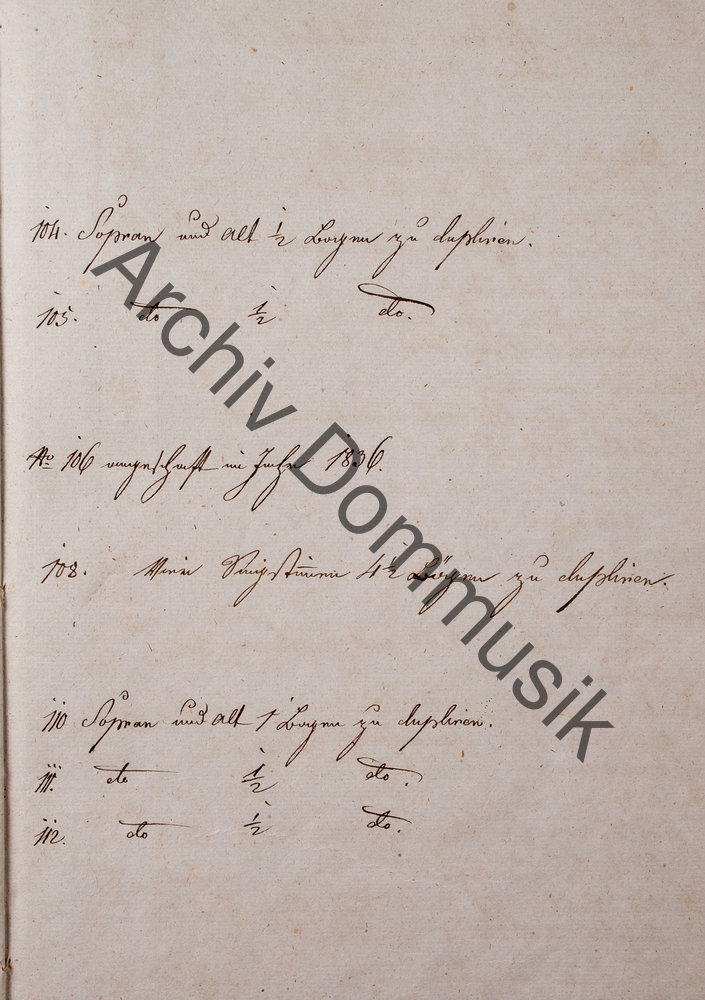 104. Sopran und Alt ½ Bogen zu dupliren.
105. do ½ do.
No 106 angeschaft im Jahr 1836.
108. Vier Singstimmen 4½ Bögen zu dupliren.
110 Sopran und Alt 1 Bogen zu dupliren.
111. do ½ do.
112. do ½ do.
Archiv Dommusik